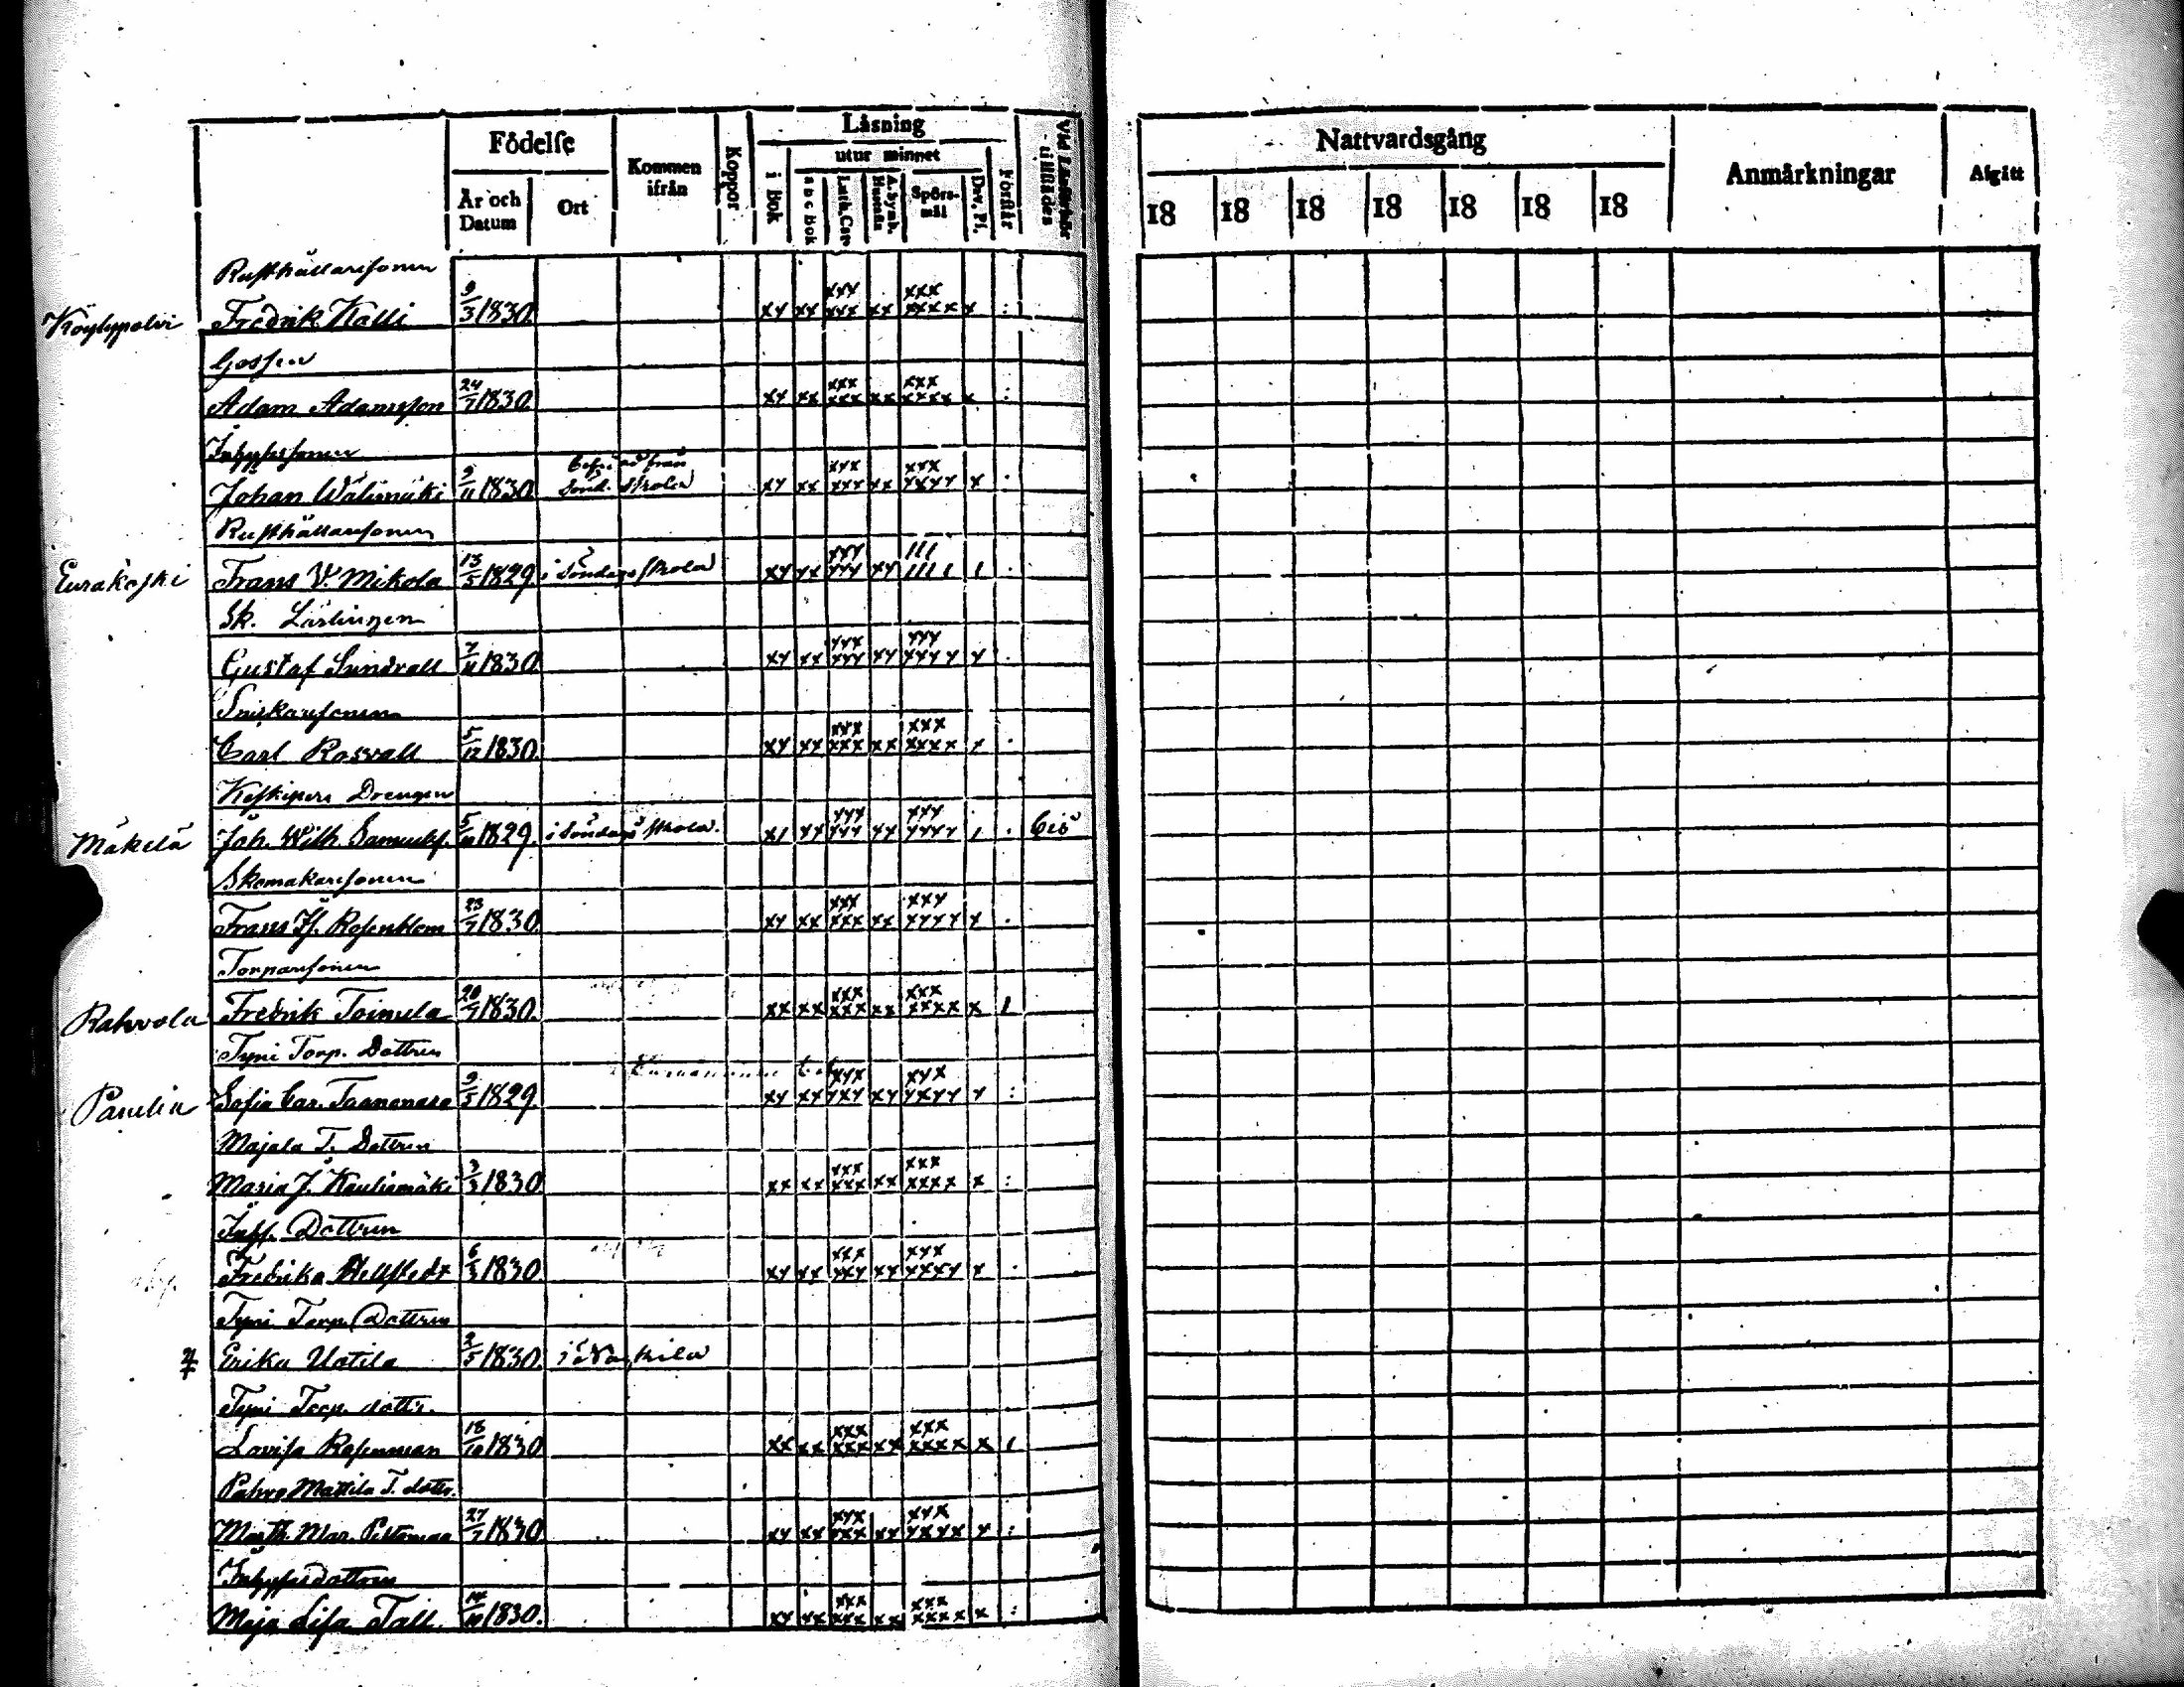 Födelse
Kommen ifrån
Koppor
Läsning
utur minnet
Förstår
Vid Läseförhör tillstädes
Nattvardsgång
Anmärkningar
Afgått
År och Datum
Ort
i bok
a b c bok
Luth. Cat.
A. Symb. Hustafla
Spörsmål
Dav. Ps.
18 18 18 18 18 18 18
Rusthållaresonen
Köylypolvi Fredrik Kalli 9/3 1830 xx xx xxx xxx xx xxx xxxx x :
Gossen
Adam Adamsson 24/7 1830 xx xx xxx xxx xx xxx xxxx x :
Inhysessonen
Johan Wälimäki 9/11 1830 befriad från Sönd. skola xx xx xxx xxx xx xxx xxxx x :
Rusthållaresonen
Eurakoski Frans V. Mikola 13/5 1829 i Söndags skola xx xx xxx xxx xx ||| |||| | .
Sk. Lärlingen
Gustaf Sundvall 7/11 1830 xx xx xxx xxx xx xxx xxxx x .
Snickaresonen
Carl Rosvall 5/12 1830 xx xx xxx xxx xx xxx xxxx x .
Keskipere Drengen
Mäkelä Joh. Wilh. Samuelss. 5/11 1829 i Söndags skola. x| xx xxx xxx xx xxx xxxx | .
Skomakaresonen
Frans Hj. Rosenblom 23/7 1830 xx xx xxx xxx xx xxx xxxx x .
Torparesonen
Rahvola Fredrik Toimela 20/7 1830 xx xx xxx xxx xx xxx xxxx x |
Tyni Torp. Dottren
Panelia Sofia Car. Taanonara 9/5 1829 xx xx xxx xxx xx xxx xxxx x :
Majala T. Dottren
Maria J. Kauliamäki 3/3 1830 xx xx xxx xxx xx xxx xxxx x :
Inhs. Dottren
Fredrika Hellstedt 6/3 1830 xx xx xxx xxx xx xxx xxxx x .
Tyni Torp. Dottren
Erika Uotila 2/5 1830
Tyni Torp. dottr.
Lovisa Rosenman 18/10 1830 xx xx xxx xxx xx xxx xxxx x |
Mattila T. dottr.
Marth. Mar. 27/7 1830 xx xx xxx xxx xx xxx xxxx x :
Inhysesdottren
Maja Lisa Tall 14/10 1830. xx xx xxx xxx xx xxx xxxx x :